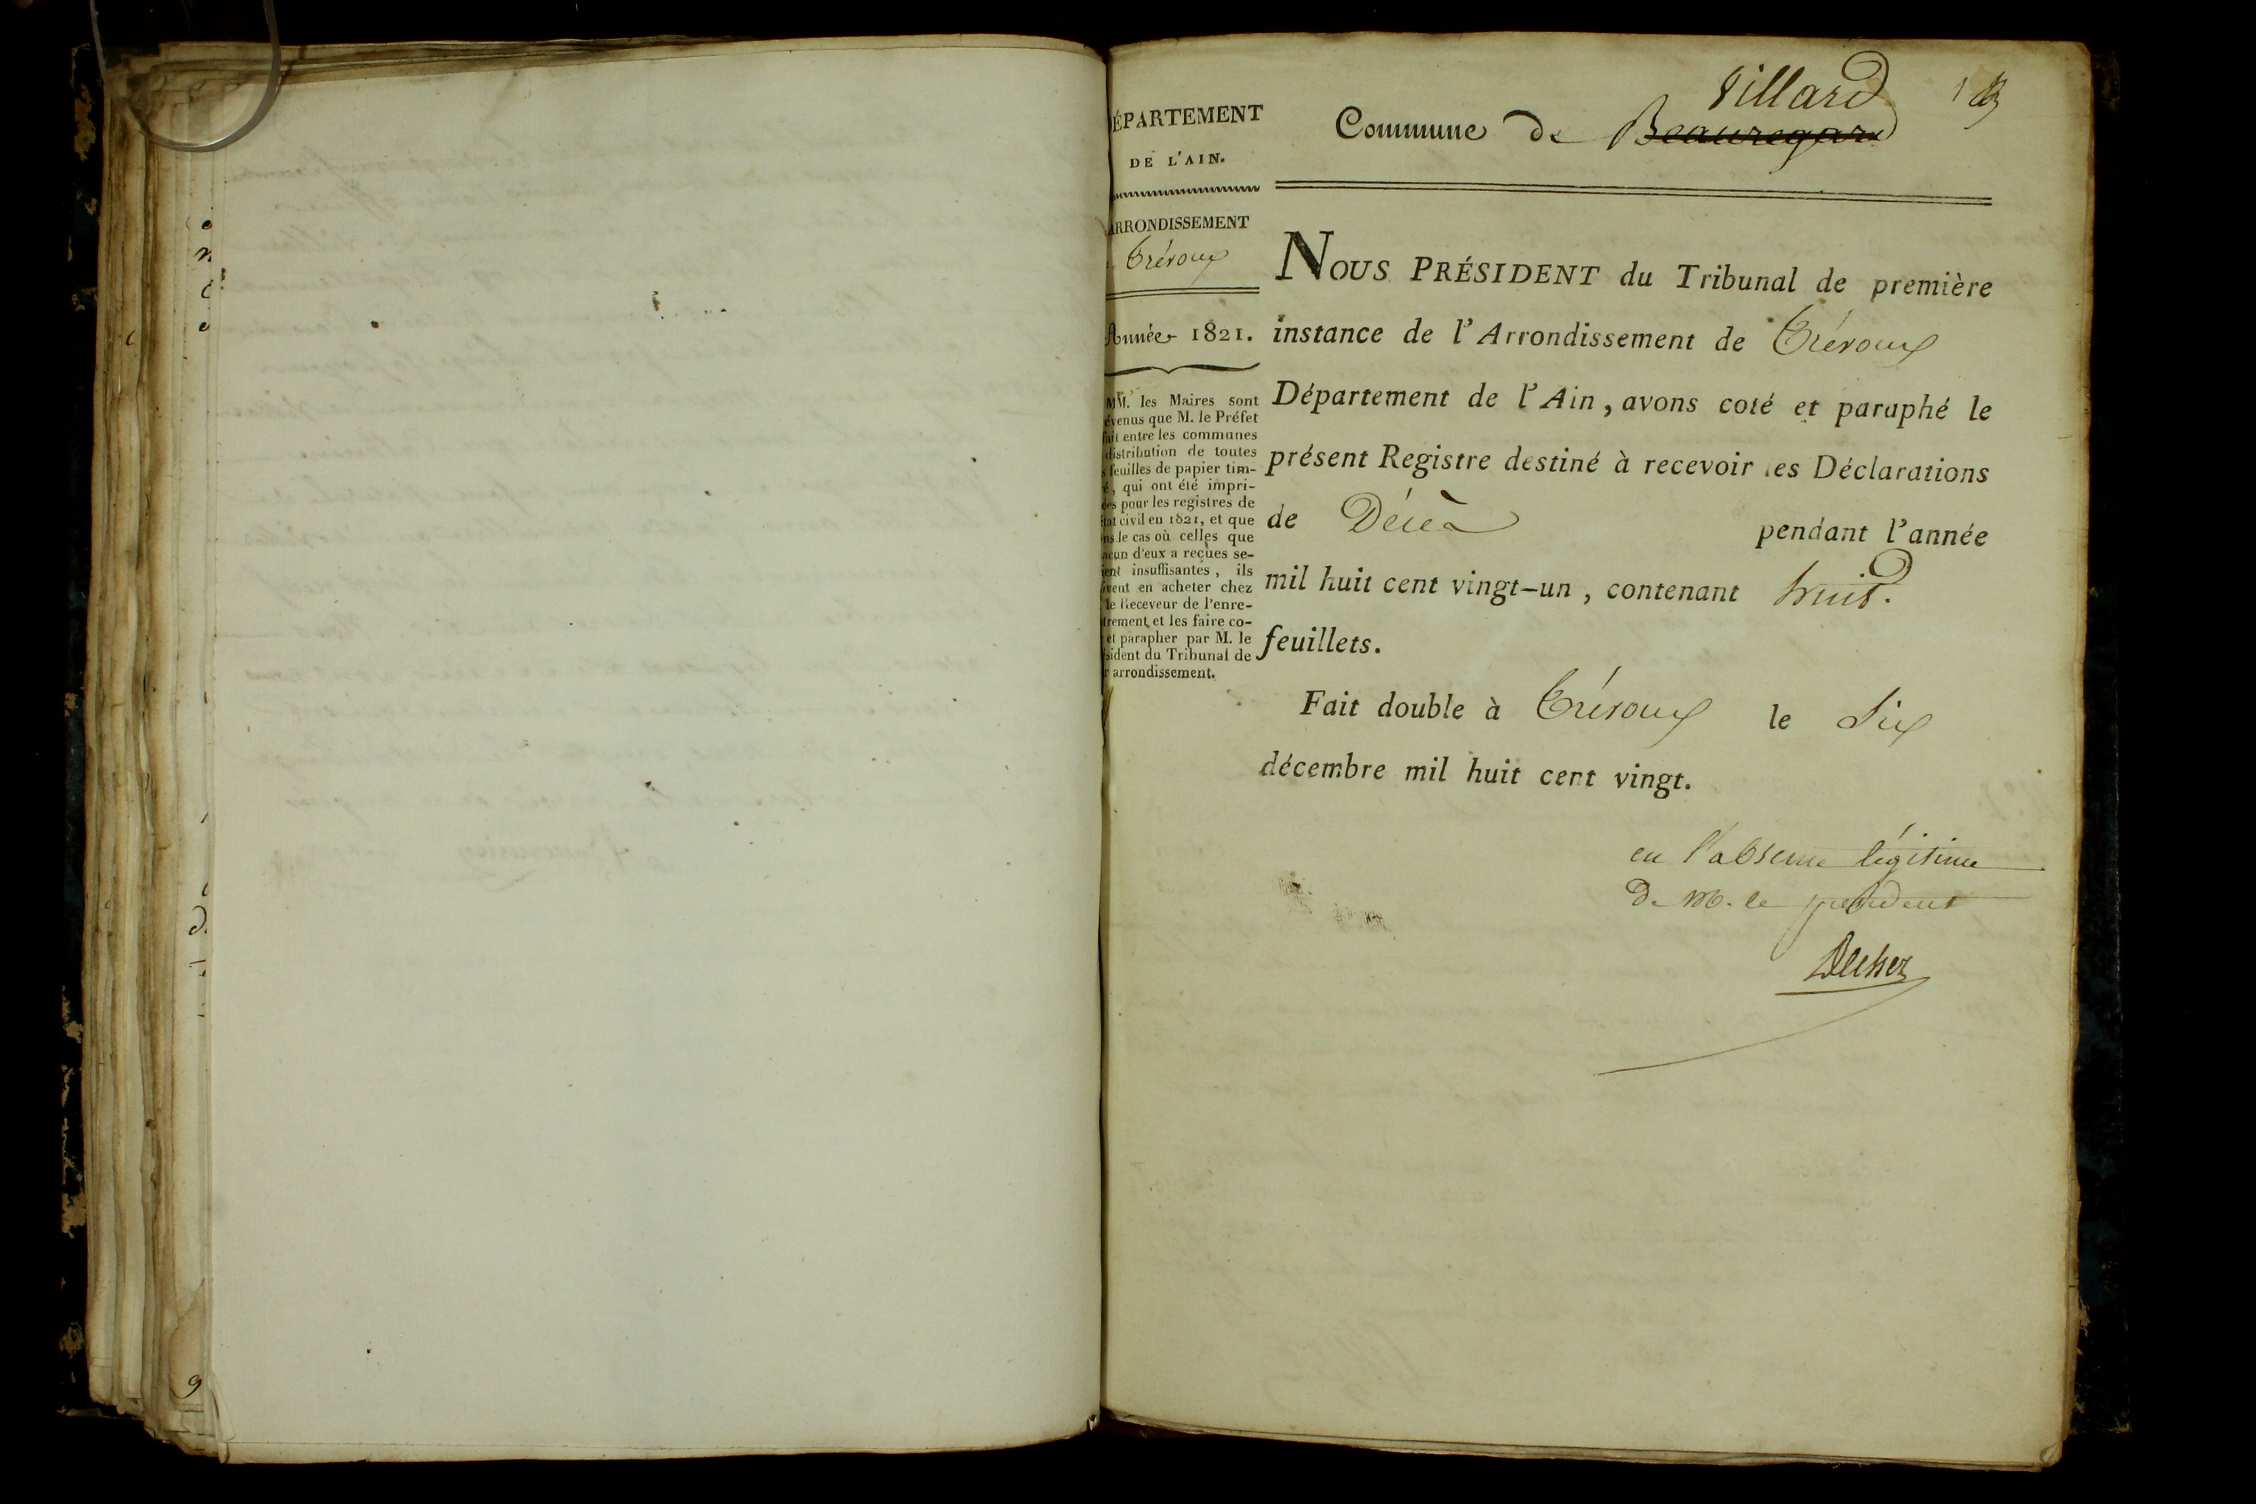 Villard
Commune de Beauregard
ÉPARTEMENT
DE L'AIN.
ARRONDISSEMENT
Trévoux
Année 1821.
MM. les Maires sont
évenus que M. le Préfet
fait entre les communes
distribution de toutes
s feuilles de papier tim-
é, qui ont été impri-
ées pour les registres de
état civil en 1821, et que
ns le cas où celles que
acun d'eux a reçues se-
ient insuffisantes, ils
ivent en acheter chez
le Receveur de l'enre-
trement et les faire co-
r et parapher par M. le
ésident du Tribunal de
r arrondissement.
NOUS PRÉSIDENT du Tribunal de première
instance de l'Arrondissement de Trévoux
Département de l'Ain, avons coté et paraphé le
présent Registre destiné à recevoir les Déclarations
de Décès pendant l'année
mil huit cent vingt-un, contenant huit.
feuillets.
Fait double à Trévoux le Six
décembre mil huit cent vingt.
en l'absence légitime
De M. le président